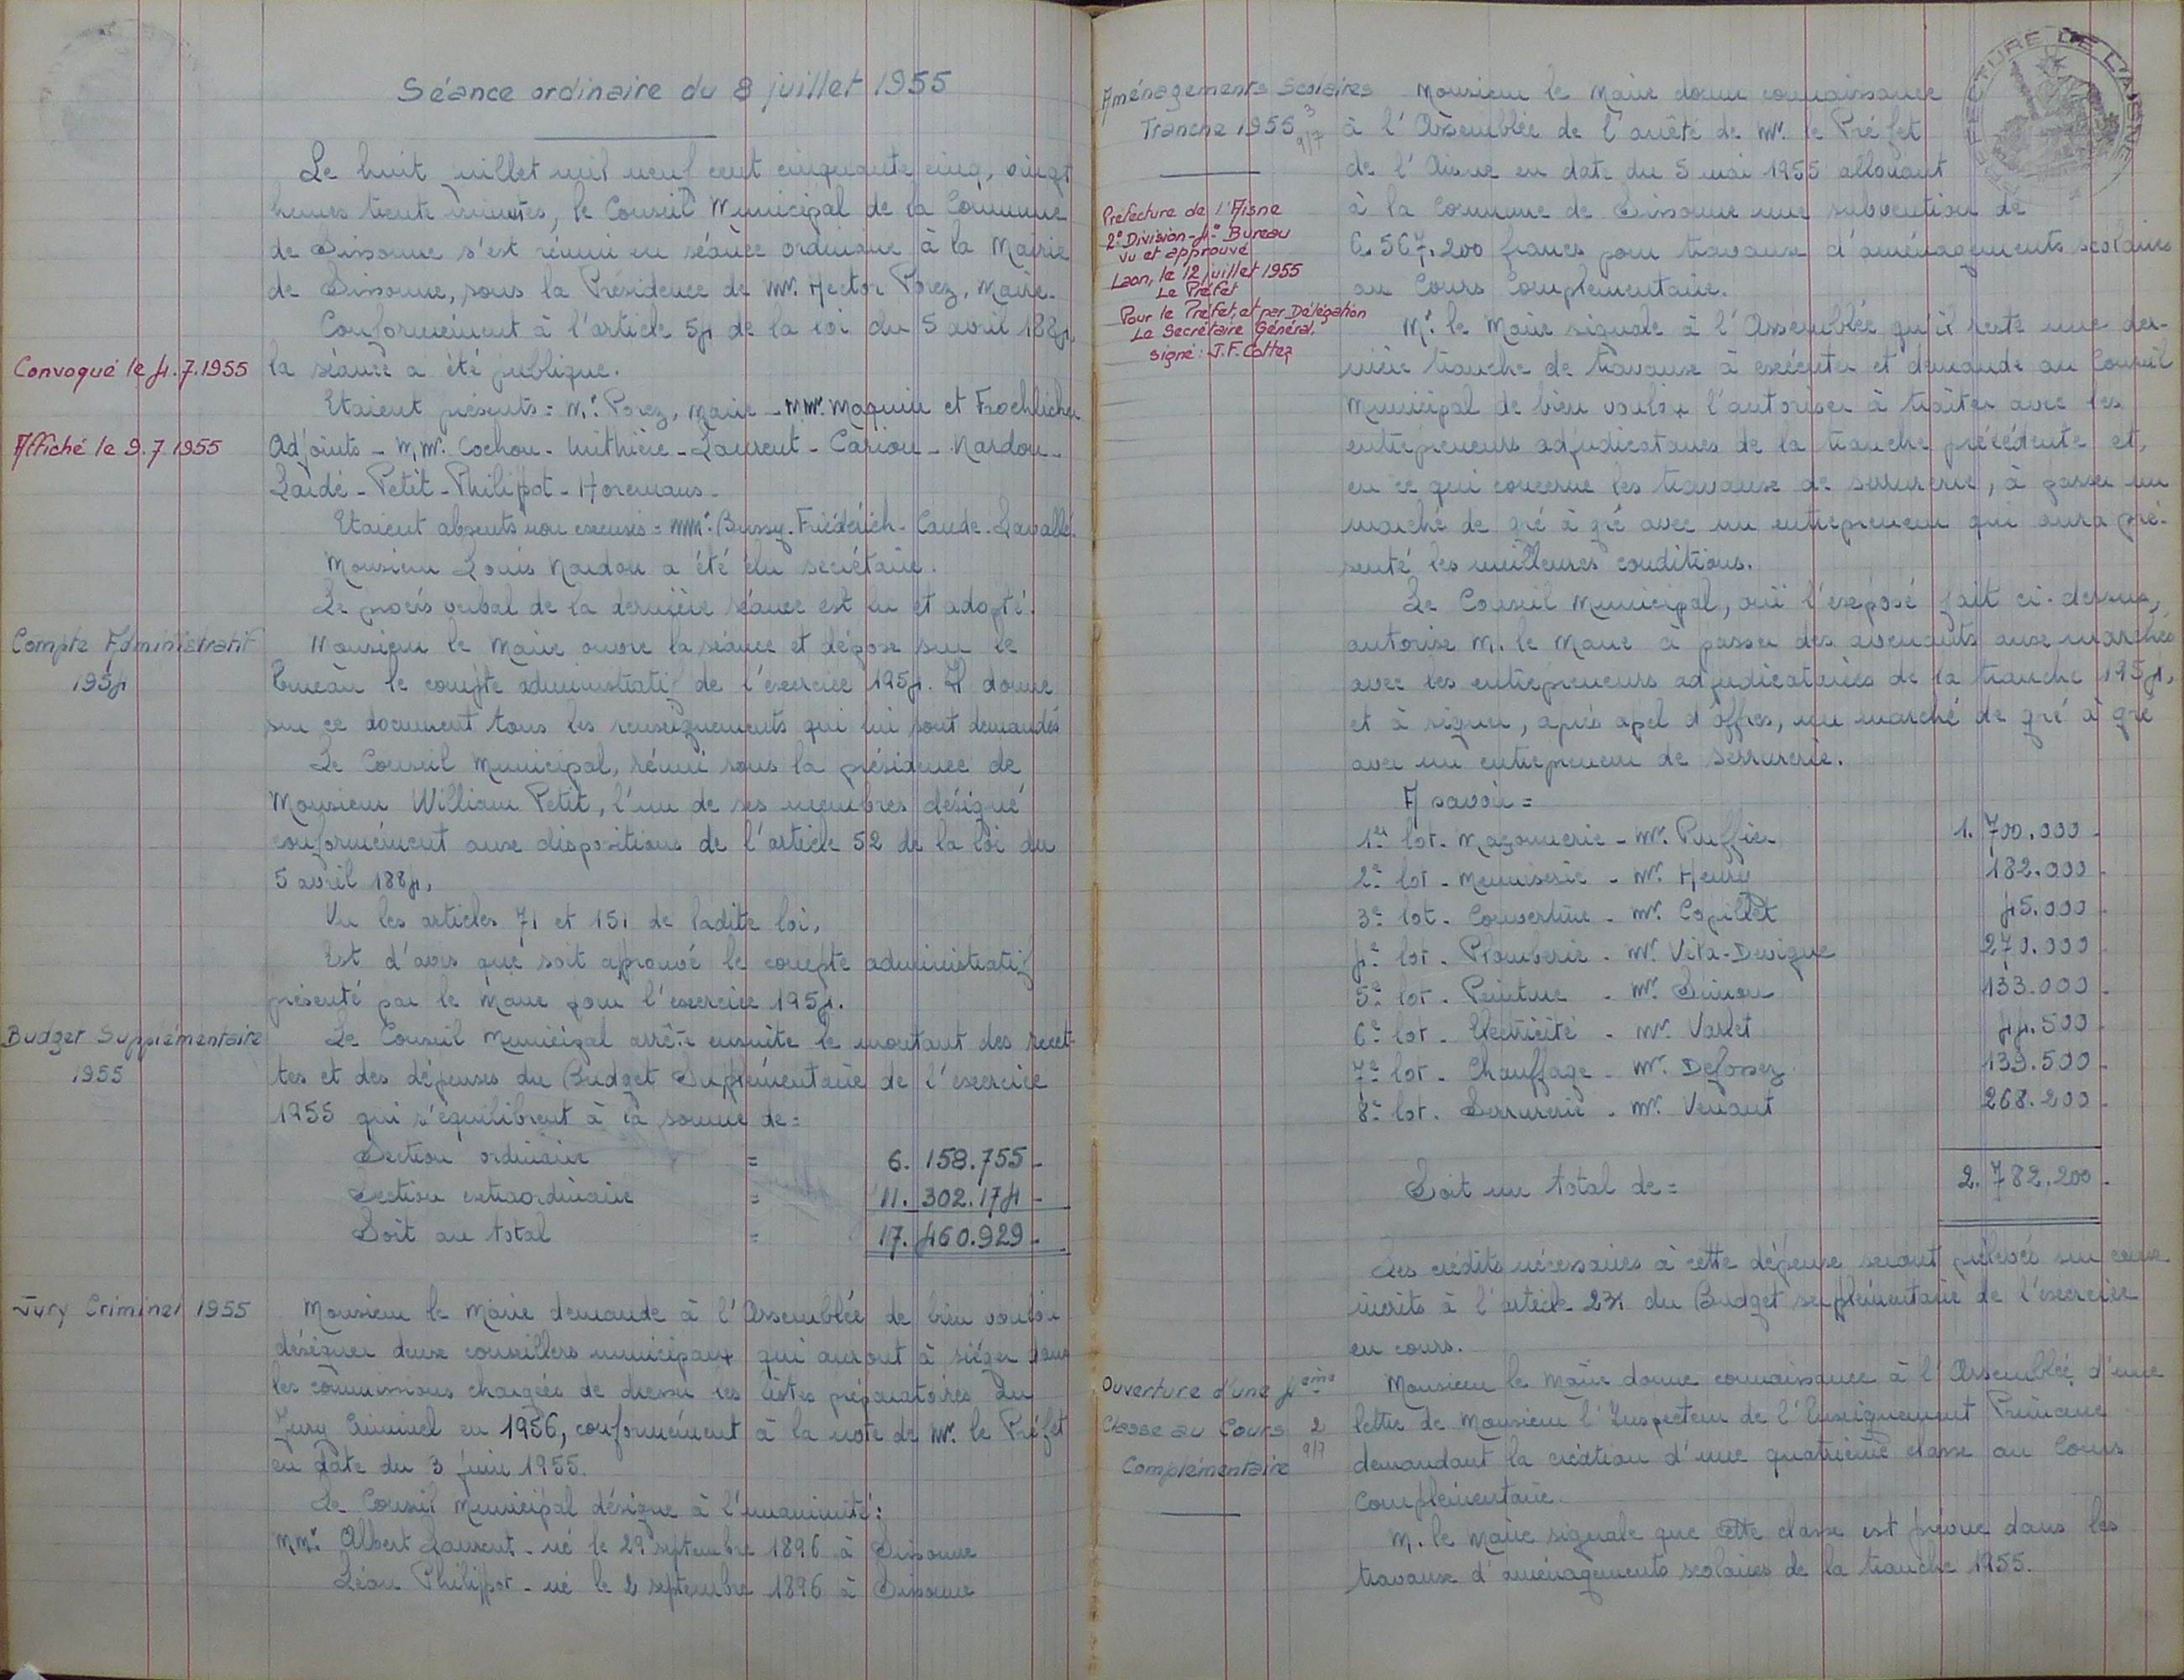 Séance ordinaire du 8 juillet 1955
Le huit juillet mil neuf cent cinquante cinq, vingt
heures trente minutes, le Conseil Municipal de la Commune
de Sissonne s'est réuni en séance ordinaire à la Mairie
de Sissonne, sous la Présidence de Mr. Hector Porez, Maire.
Conformément à l'article 54 de la loi du 5 avril 1884,
Convoqué le 4.7.1955
la séance a été publique.
Etaient présents = Mr. Porez, Maire - MMr. Maquin et Froehlicher
Affiché le 9.7.1955
Adjoints - MMr. Cochon - Mithière - Laurent - Cariou - Nardou -
Laidé - Petit - Philippot - Horemans -
Etaient absents non excusés = MMr. Bussy - Friédérich - Caude - Lavallé.
Monsieur Louis Nardou a été élu secrétaire.
Le procès verbal de la dernière séance est lu et adopté.
Compte Administratif
1954
Monsieur le Maire ouvre la séance et dépose sur le
bureau le compte administratif de l'exercice 1954. Il donne
sur ce document tous les renseignements qui lui sont demandés
Le Conseil Municipal, réuni sous la présidence de
Monsieur William Petit, l'un de ses membres désigné
conformément aux dispositions de l'article 52 de la loi du
5 avril 1884,
Vu les articles 71 et 151 de ladite loi,
Est d'avis que soit aprouvé le compte administratif
présenté par le Maire pour l'exercice 1954.
Budget Supplémentaire
1955
Le Conseil Municipal arrête ensuite le montant des recet-
tes et des dépenses du Budget Suplémentaire de l'exercice
1955 qui s'équilibrent à la somme de =
Section ordinaire = 6.158.755 -
Section extraordinaire = 11.302.174 -
Soit au total = 17.460.929 -
Jury Criminel 1955
Monsieur le Maire demande à l'Assemblée de bien vouloir
désigner deux conseillers municipaux qui auront à siéger dans
les commissions chargées de dresser les listes préparatoires du
Jury Criminel en 1956, conformément à la note de Mr. le Préfet
en date du 3 juin 1955.
Le Conseil Municipal désigne à l'unanimité :
MMr. Albert Laurent - né le 29 septembre 1896 à Sissonne
Léon Philippot - né le 2 septembre 1896 à Sissonne
Aménagements Scolaires
Tranche 1955
3
9/7
PREFECTURE DE L'AISNE
Préfecture de l'Aisne
2e Division - 4e Bureau
Vu et approuvé
Laon, le 12 juillet 1955
Le Préfet
Pour le Préfet, et par Délégation
Le Secrétaire Général.
signé : J.F. Cottez
Monsieur le Maire donne connaissance
à l'Assemblée de l'arrêté de Mr. le Préfet
de l'Aisne en date du 5 mai 1955 allouant
à la Commune de Sissonne une subvention de
6.567.200 francs pour travaux d'aménagements scolaires
au Cours Complémentaire.
Mr. le Maire signale à l'Assemblée qu'il reste une der-
nière tranche de travaux à exécuter et demande au Conseil
Municipal de bien vouloir l'autoriser à traiter avec les
entrepreneurs adjudicataires de la tranche précédente et,
en ce qui concerne les travaux de serrurerie, à passer un
marché de gré à gré avec un entrepreneur qui aura pré-
senté les meilleures conditions.
Le Conseil Municipal, ouï l'exposé fait ci-dessus,
autorise M. le Maire à passer des avenants aux marchés
avec les entrepreneurs adjudicataires de la tranche 1954,
et à signer, après apel d'offres, un marché de gré à gré
avec un entrepreneur de serrurerie.
A savoir =
1er lot - Maçonnerie - Mr. Puffier 1.700.000 -
2e lot - Menuiserie - Mr. Henry 182.000 -
3e lot - Couverture - Mr. Copillet 45.000 -
4e lot - Plomberie - Mr. Vita-Devigne 270.000 -
5e lot - Peinture - Mr. Simon 133.000 -
6e lot - Electricité - Mr. Varlet 44.500 -
7e lot - Chauffage - Mr. Defossez 139.500 -
8e lot - Serrurerie - Mr. Venant 268.200 -
Soit un total de = 2.782.200 -
Les crédits nécessaires à cette dépense seront prélevés sur ceux
inscrits à l'article 24 du Budget suplémentaire de l'exercice
en cours.
Ouverture d'une 4ème
Classe au Cours
Complémentaire
2
9/7
Monsieur le Maire donne connaissance à l'Assemblée d'une
lettre de Monsieur l'Inspecteur de l'Enseignement Primaire
demandant la création d'une quatrième classe au Cours
Complémentaire.
M. le Maire signale que cette classe est prévue dans les
travaux d'aménagements scolaires de la tranche 1955.